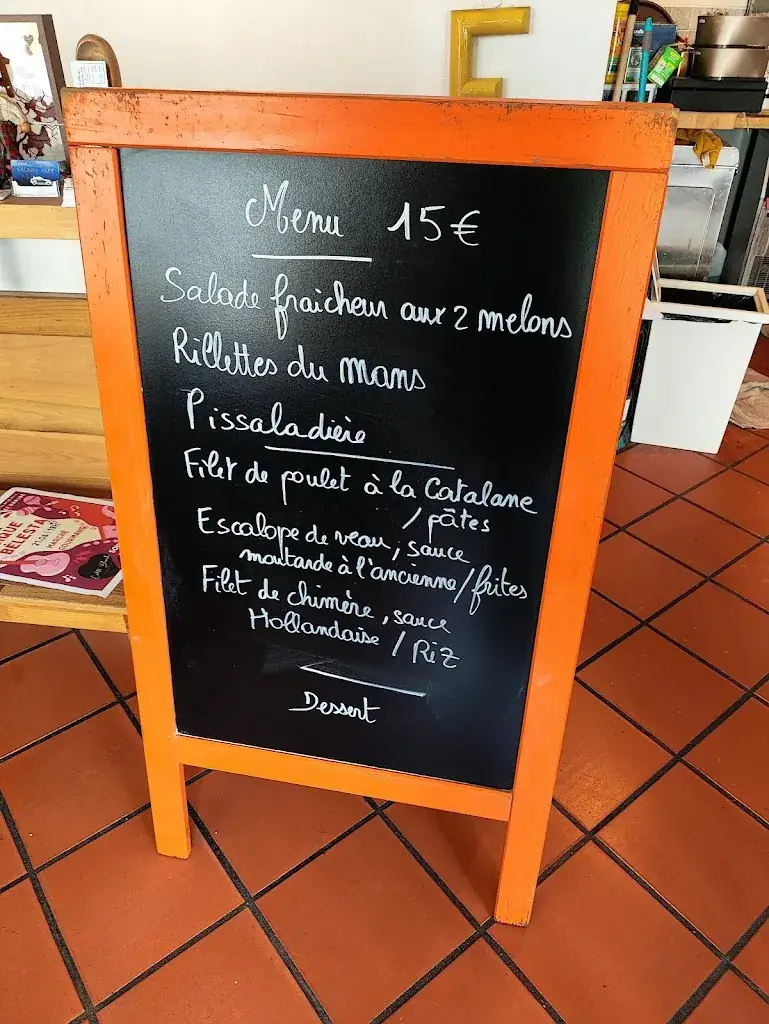 E
Menu 15€
Salade fraicheur aux 2 melons
Rillettes du mans
Pissaladière
Filet de poulet à la Catalane
/ pâtes
Escalope de veau, sauce
moutarde à l'ancienne / frites
Filet de chimère, sauce
Hollandaise / Riz
Dessert